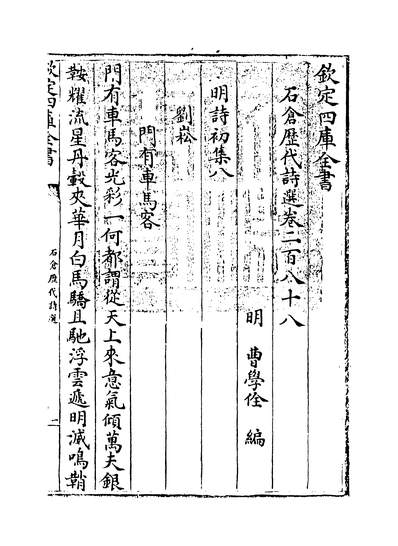 欽定四庫全書
石倉歴代詩選卷二百八十八
明　曹學佺　編
明詩初集八
劉崧
門有車馬客
門有車馬客光彩一何都謂從天上來意氣傾萬夫銀
鞍耀流星丹轂夾華月白馬驕且馳浮雲遞明滅鳴鞘
欽定四庫全書
石倉歴代詩選
一